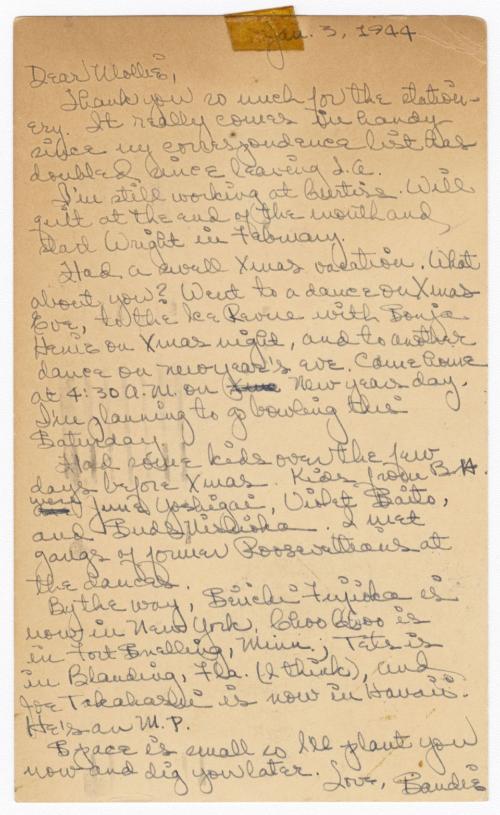 Jan. 3, 1944
Dear Mollie,
Thank you so much for the station-
ery. It really comes in handy
since my correspondence list has
doubled since leaving L.A.
I'm still working at Curtiss. Will
quit at the end of the month and
start Wright in February.
Had a swell Xmas vacation. What
about you? Went to a dance on Xmas
Eve, to the Ice Revue with Sonja
Henie on Xmas night, and to another
dance on new year's eve. Came home
at 4:30 A.M. on New years day.
I'm planning to go bowling this
Saturday.
Had some kids over the few
days before Xmas. Kids from B.H.
were June Yoshigai, Violet Saito,
and Bud Nishioka. I met
gangs of former Rooseveltians at
the dances.
By the way, Seiichi Fujioka is
now in New York, Choo Choo is
in Fort Snelling, Minn., Tets is
in Blanding, Fla. (I think), and
Joe Takahashi is now in Hawaii.
He's an M.P.
Space is small so I'll plant you
now and dig you later. Love, Sandie